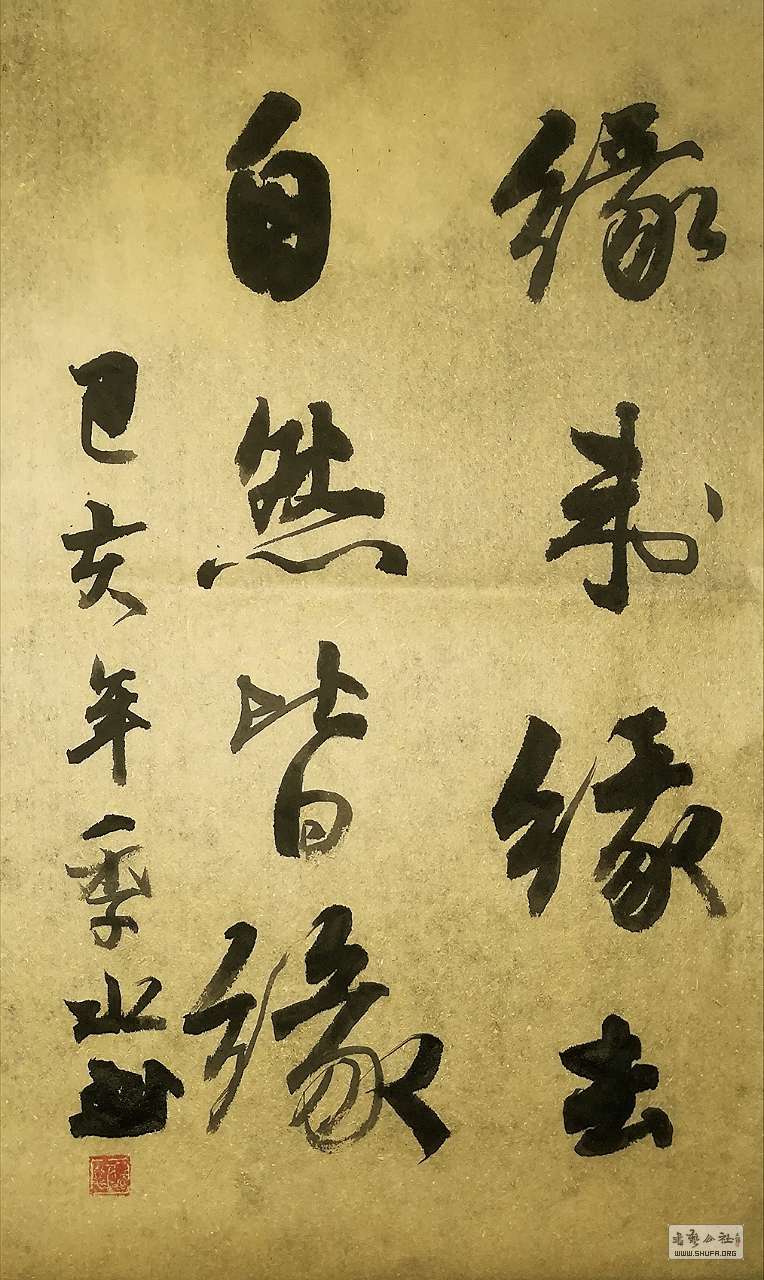 缘来缘去
自然皆缘
己亥年季水书
书艺公社
WWW.SHUFA.ORG